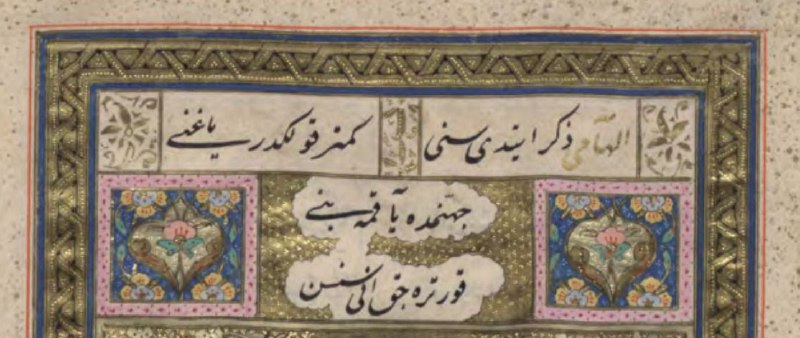 الهامی ذکر ایتدی سنی کمتر قولکدر یا غنی
جهنمده یاقمه بنی
قورتره حق الی سنن